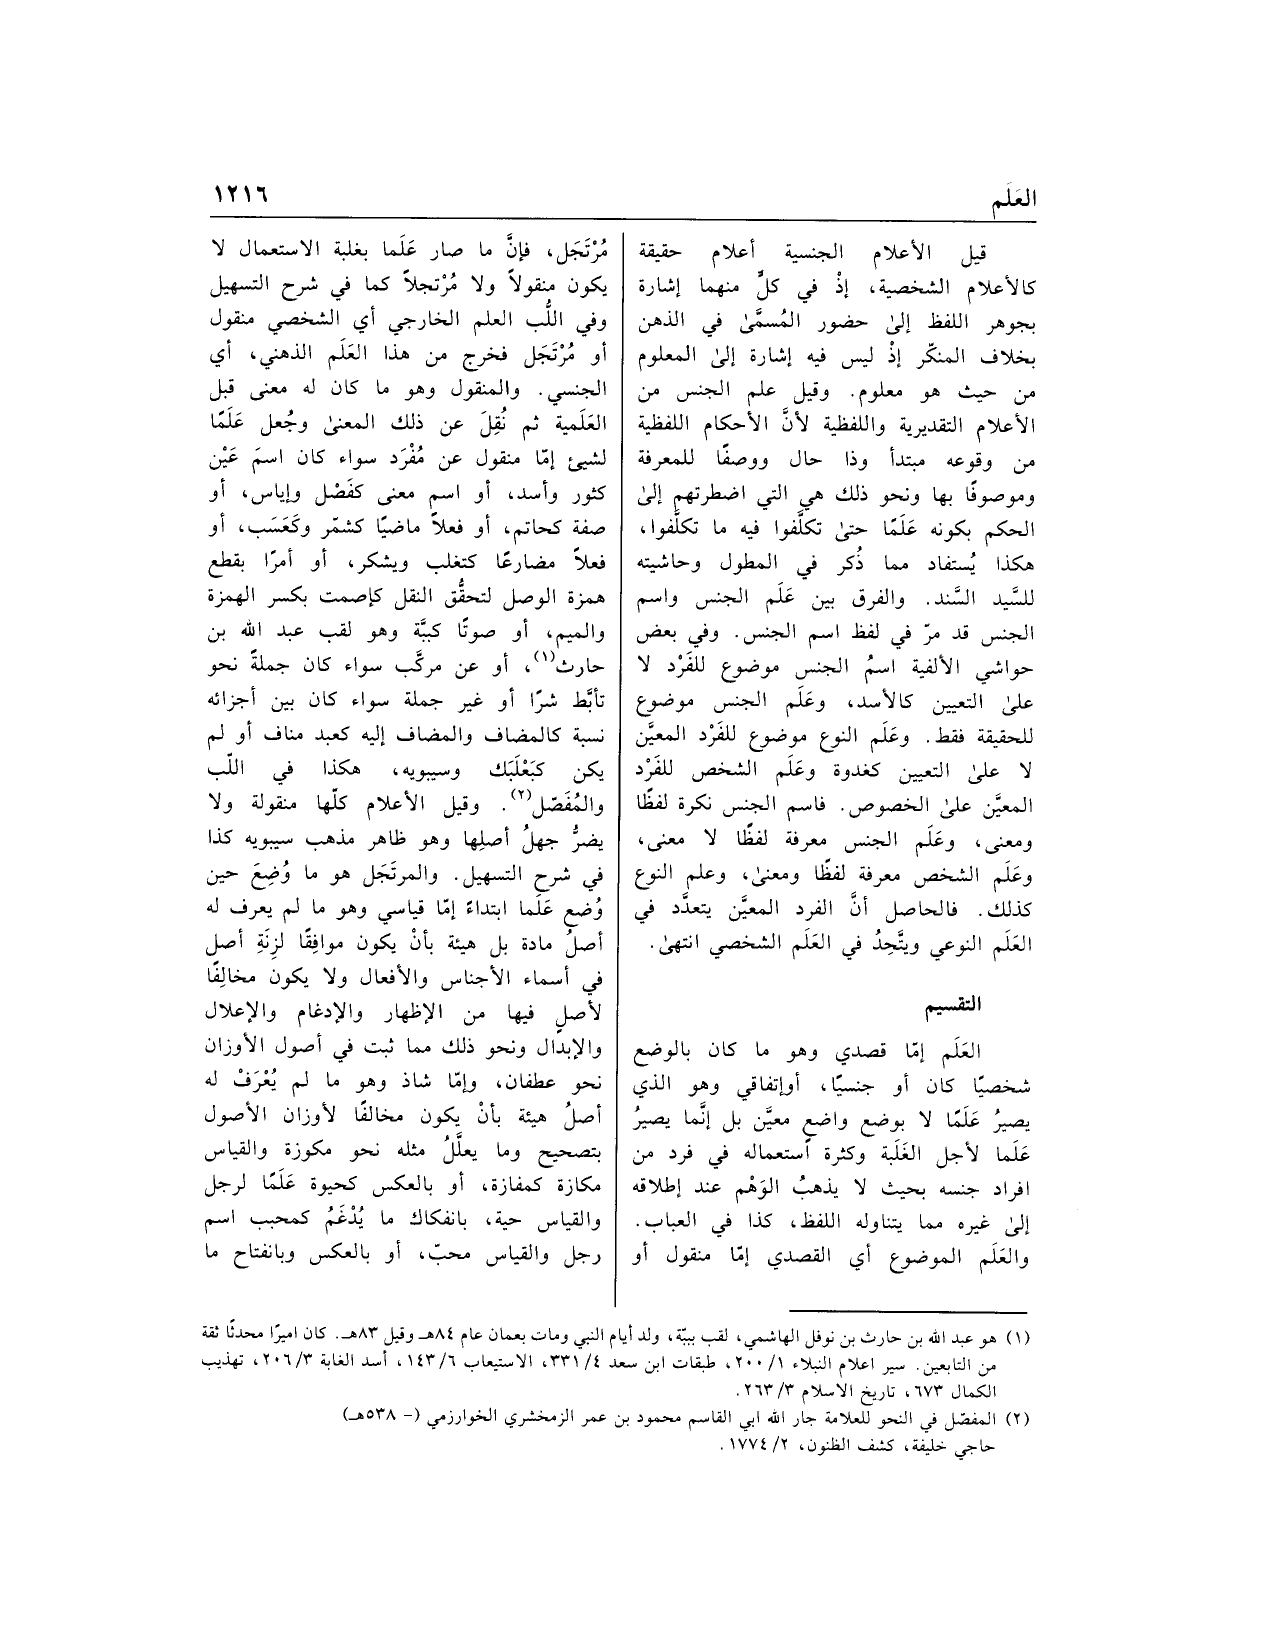 العَلَم
١٢١٦
قيل الأعلام الجنسية أعلام حقيقة
كالأعلام الشخصية، إذْ في كلٍّ منهما إشارة
بجوهر اللفظ إلىٰ حضور المُسمَّىٰ في الذهن
بخلاف المنكّر إذْ ليس فيه إشارة إلىٰ المعلوم
من حيث هو معلوم. وقيل علم الجنس من
الأعلام التقديرية واللفظية لأنَّ الأحكام اللفظية
من وقوعه مبتدأ وذا حال ووصفًا للمعرفة
وموصوفًا بها ونحو ذلك هي التي اضطرتهم إلىٰ
الحكم بكونه عَلَمًا حتىٰ تكلَّفوا فيه ما تكلَّفوا،
هكذا يُستفاد مما ذُكر في المطول وحاشيته
للسَّيد السَّند. والفرق بين عَلَم الجنس واسم
الجنس قد مرّ في لفظ اسم الجنس. وفي بعض
حواشي الألفية اسمُ الجنس موضوع للفَرْد لا
علىٰ التعيين كالأسد، وعَلَم الجنس موضوع
للحقيقة فقط. وعَلَم النوع موضوع للفَرْد المعيَّن
لا علىٰ التعيين كغدوة وعَلَم الشخص للفَرْد
المعيَّن علىٰ الخصوص. فاسم الجنس نكرة لفظًا
ومعنى، وعَلَم الجنس معرفة لفظًا لا معنى،
وعَلَم الشخص معرفة لفظًا ومعنىٰ، وعلم النوع
كذلك. فالحاصل أنَّ الفرد المعيَّن يتعدَّد في
العَلَم النوعي ويتَّحِدُ في العَلَم الشخصي انتهىٰ.
التقسيم
العَلَم إمّا قصدي وهو ما كان بالوضع
شخصيًا كان أو جنسيًا، أوإتفاقي وهو الذي
يصيرُ عَلَمًا لا بوضع واضع معيَّن بل إنَّما يصيرُ
عَلَما لأجل الغَلَبة وكثرة استعماله في فرد من
افراد جنسه بحيث لا يذهبُ الوَهْم عند إطلاقه
إلىٰ غيره مما يتناوله اللفظ، كذا في العباب.
والعَلَم الموضوع أي القصدي إمّا منقول أو
مُرْتَجَل، فإنَّ ما صار عَلَما بغلبة الاستعمال لا
يكون منقولاً ولا مُرْتجلاً كما في شرح التسهيل
وفي اللُّب العلم الخارجي أي الشخصي منقول
أو مُرْتَجَل فخرج من هذا العَلَم الذهني، أي
الجنسي. والمنقول وهو ما كان له معنى قبل
العَلَمية ثم نُقِلَ عن ذلك المعنىٰ وجُعل عَلَمًا
لشيئ إمّا منقول عن مُفْرَد سواء كان اسمَ عَيْن
كثور وأسد، أو اسم معنى كفَضْل وإياس، أو
صفة كحاتم، أو فعلاً ماضيًا كشمّر وكَعَسَب، أو
فعلاً مضارعًا كتغلب ويشكر، أو أمرًا بقطع
همزة الوصل لتحقُّق النقل كإصمت بكسر الهمزة
والميم، أو صوتًا كببَّة وهو لقب عبد الله بن
حارث(١)، أو عن مركَّب سواء كان جملةً نحو
تأبَّط شرًا أو غير جملة سواء كان بين أجزائه
نسبة كالمضاف والمضاف إليه كعبد مناف أو لم
يكن كبَعْلَبَك وسيبويه، هكذا في اللّب
والمُفَصّل(٢). وقيل الأعلام كلّها منقولة ولا
يضرُّ جهلُ أصلِها وهو ظاهر مذهب سيبويه كذا
في شرح التسهيل. والمرتَجَل هو ما وُضِعَ حين
وُضع عَلَما ابتداءً إمّا قياسي وهو ما لم يعرف له
أصلُ مادة بل هيئة بأنْ يكون موافِقًا لزِنَةِ أصل
في أسماء الأجناس والأفعال ولا يكون مخالِفًا
لأصلٍ فيها من الإظهار والإدغام والإعلال
والإبدال ونحو ذلك مما ثبت في أصول الأوزان
نحو عطفان، وإمّا شاذ وهو ما لم يُعْرَفْ له
أصلُ هيئة بأنْ يكون مخالفًا لأوزان الأصول
بتصحيح وما يعلَّلُ مثله نحو مكوزة والقياس
مكازة كمفازة، أو بالعكس كحيوة عَلَمًا لرجل
والقياس حية، بانفكاك ما يُدْغَمُ كمحبب اسم
رجل والقياس محبّ، أو بالعكس وبانفتاح ما
(١) هو عبد الله بن حارث بن نوفل الهاشمي، لقب ببّة، ولد أيام النبي ومات بعمان عام ٨٤هـ وقيل ٨٣هـ. كان اميرًا محدثًا ثقة
من التابعين. سير اعلام النبلاء ٢٠٠/١، طبقات ابن سعد ٣٣١/٤، الاستيعاب ١٤٣/٦، أسد الغابة ٢٠٦/٣، تهذيب
الكمال ٦٧٣، تاريخ الاسلام ٢٦٣/٣.
(٢) المفصّل في النحو للعلامة جار الله ابي القاسم محمود بن عمر الزمخشري الخوارزمي (- ٥٣٨هـ)
حاجي خليفة، كشف الظنون، ١٧٧٤/٢.